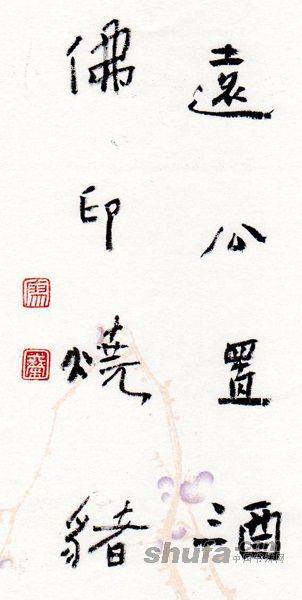 遠公置酒
佛印燒豬
shufa